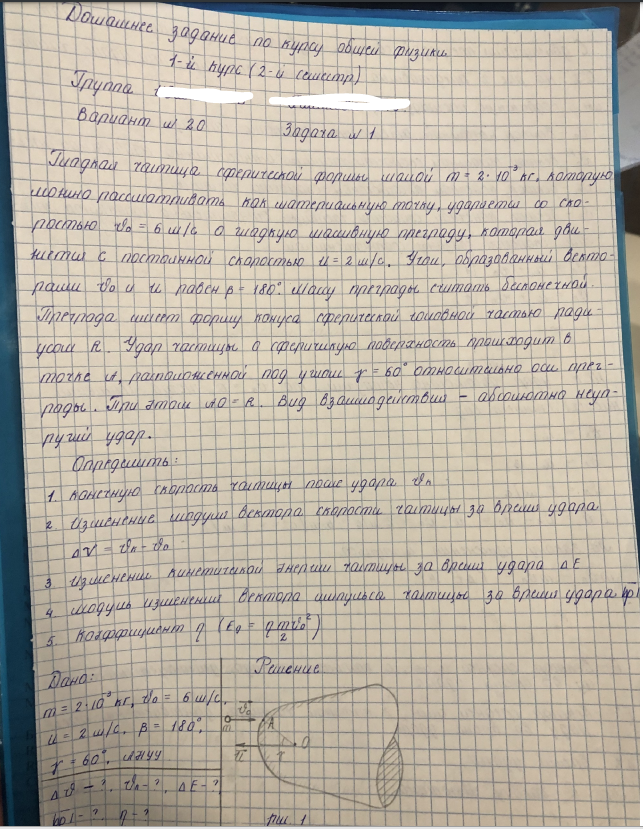 Домашнее задание по курсу общей физики
1-й курс (2-й семестр)
Группа
Вариант №20 Задача №1
Гладкая частица сферической формы массой m = 2·10⁻³ кг, которую
можно рассматривать как материальную точку, ударяется со ско-
ростью ϑ₀ = 6 м/с о гладкую массивную преграду, которая дви-
жется с постоянной скоростью u = 2 м/с. Угол, образованный векто-
рами ϑ₀ и u равен β = 180°. Массу преграды считать бесконечной.
Преграда имеет форму конуса сферической головной частью ради-
усом R. Удар частицы о сферическую поверхность происходит в
точке A, расположенной под углом γ = 60° относительно оси прег-
рады. При этом AO = R. Вид взаимодействия – абсолютно неуп-
ругий удар.
Определить:
1. Конечную скорость частицы после удара ϑₙ
2. Изменение модуля вектора скорости частицы за время удара
ΔV = ϑₙ - ϑ₀
3. Изменение кинетической энергии частицы за время удара ΔE
4. Модуль изменения вектора импульса частицы за время удара |p|
5. Коэффициент η (Eg = η mϑ₀²/2)
Дано: Решение
m = 2·10⁻³ кг, ϑ₀ = 6 м/с,
u = 2 м/с, β = 180°,
γ = 60°,
Δϑ - ?, ϑₙ - ?, ΔE - ?
|p| - ? η - ?
m ϑ₀ A
u γ O
рис 1